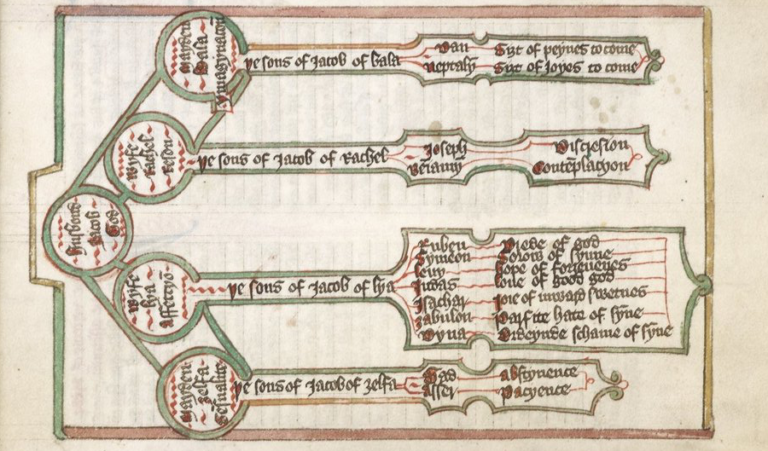 Mayden
Bala
Ymagynacion
ye sons of Jacob of bala
Dan
Neptaly
Syt of peynes to come
Syt of Joyes to come
Wyfe
Rachel
Reson
ye sons of Jacob of Rachel
Joseph
Beniamy
Discresion
Contēplacyon
Husbond
Jacob
God
Wyfe
lya
Affeccyō
ye sons of Jacob of lya
Ruben
Symeon
leuy
Iudas
Isachar
Zabulon
Dyna
Drede of god
Sorow of synne
hope of forgeuenes
loue of good god
Joie of inward swetnes
Parfite hate of syne
Ordeynde schame of syne
Mayden
Zelfa
Sensualite
ye sons of Jacob of zelfa
Gad
Asser
Abstynence
Pacyence